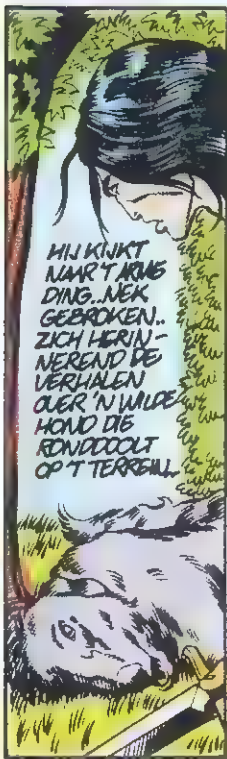 HIJ KIJKT
NAAR 'T ARME
DING.. NEK
GEBROKEN..
ZICH HERIN-
NEREND DE
VERHALEN
OVER 'N WILDE
HOND DIE
RONDDOOLT
OP 'T TERREIN..